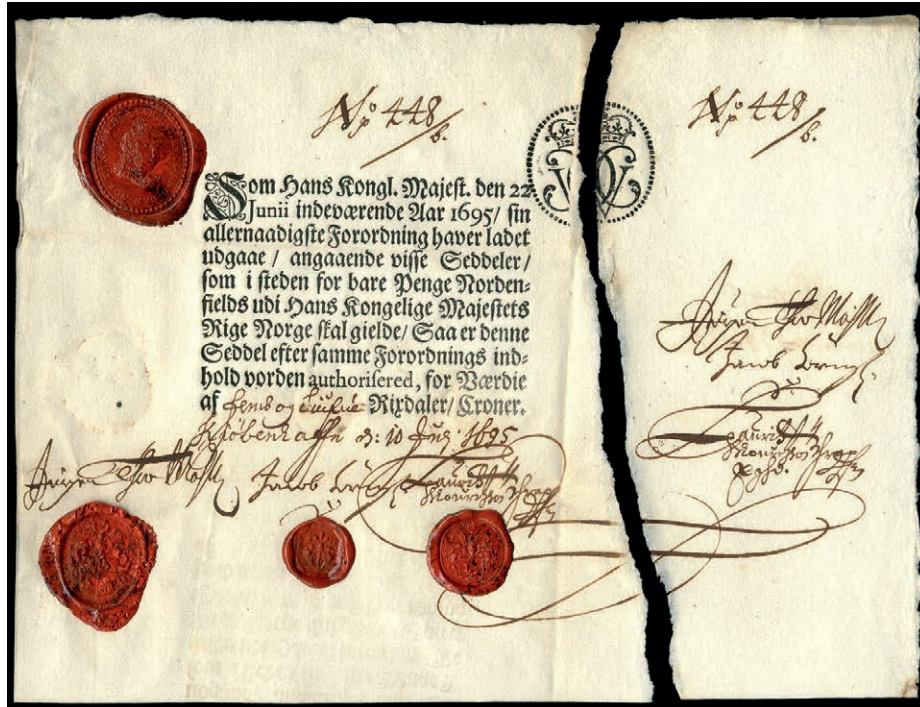 No 448/b.
No 448/b.
Som Hans Kongl. Majest. den 22
Junii indeværende Aar 1695/ sin
allernaadigste Forordning haver ladet
udgaae / angaaende visse Seddeler /
som i steden for bare Penge Norden-
fields udi Hans Kongelige Majestets
Rige Norge skal gielde/ Saa er denne
Seddel efter samme Forordnings ind-
hold vorden authorisered, for Værdie
af fems og Tiufue Rixdaler/ Croner.
Kiøbenhaffn d: 10 Julj 1695
Jørgen Thor Møhlen
Jacob
Laurids
Jørgen Thor Møhlen
Jacob
Laurids